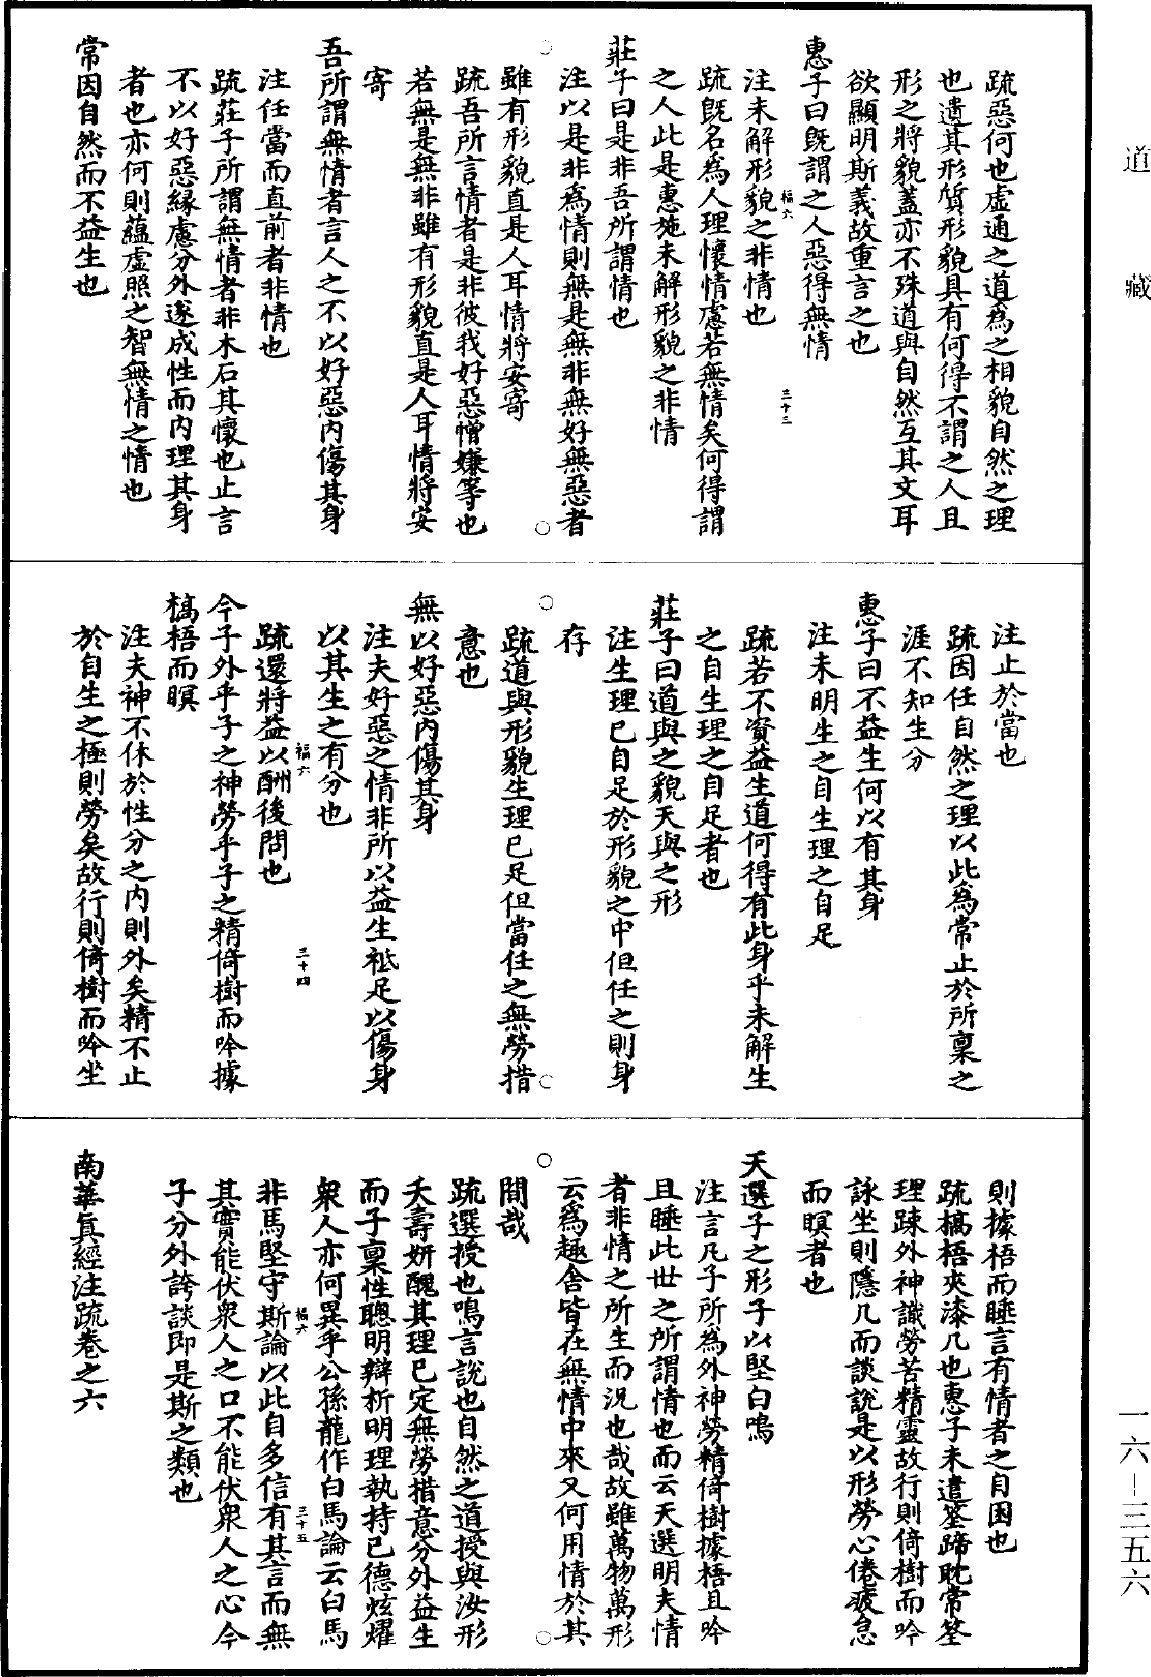 疏惡何也虛通之道為之相貌自然之理
也遺其形質形貌具有何得不謂之人且
形之將貌蓋亦不殊道與自然互其文耳
欲顯明斯義故重言之也
惠子曰旣謂之人惡得無情
福六 三十三
注未解形貌之非情也
疏旣名為人理懷情慮若無情矣何得謂
之人此是惠施未解形貌之非情
莊子曰是非吾所謂情也
注以是非為情則無是無非無好無惡者
雖有形貌直是人耳情將安寄
疏吾所言情者是非彼我好惡憎嫌等也
若無是無非雖有形貌直是人耳情將安
寄
吾所謂無情者言人之不以好惡內傷其身
注任當而直前者非情也
疏莊子所謂無情者非木石其懷也止言
不以好惡緣慮分外遂成性而內理其身
者也亦何則蘊虛照之智無情之情也
常因自然而不益生也
注止於當也
疏因任自然之理以此為常止於所稟之
涯不知生分
惠子曰不益生何以有其身
注未明生之自生理之自足
疏若不資益生道何得有此身乎未解生
之自生理之自足者也
莊子曰道與之貌天與之形
注生理已自足於形貌之中但任之則身
存
疏道與形貌生理已足但當任之無勞措
意也
無以好惡內傷其身
注夫好惡之情非所以益生祗足以傷身
以其生之有分也
福六 三十四
疏還將益以酬後問也
今子外乎子之神勞乎子之精倚樹而吟據
槁梧而瞑
注夫神不休於性分之內則外矣精不止
於自生之極則勞矣故行則倚樹而吟坐
則據梧而睡言有情者之自困也
疏槁梧夾漆几也惠子未遣筌蹄耽常筌
理疎外神識勞苦精靈故行則倚樹而吟
詠坐則隱几而談說是以形勞心倦疲怠
而瞑者也
天選子之形子以堅白鳴
注言凡子所為外神勞精倚樹據梧且吟
且睡此世之所謂情也而云天選明夫情
者非情之所生而況也哉故雖萬物萬形
云為趣舍皆在無情中來又何用情於其
間哉
疏選授也鳴言說也自然之道授與汝形
夭壽妍醜其理已定無勞措意分外益生
而子稟性聰明辯析明理執持已德炫燿
衆人亦何異乎公孫龍作白馬論云白馬
福六 三十五
非馬堅守斯論以此自多信有其言而無
其實能伏衆人之口不能伏衆人之心今
子分外誇談即是斯之類也
南華真經注疏卷之六
道 藏
一六－三五六